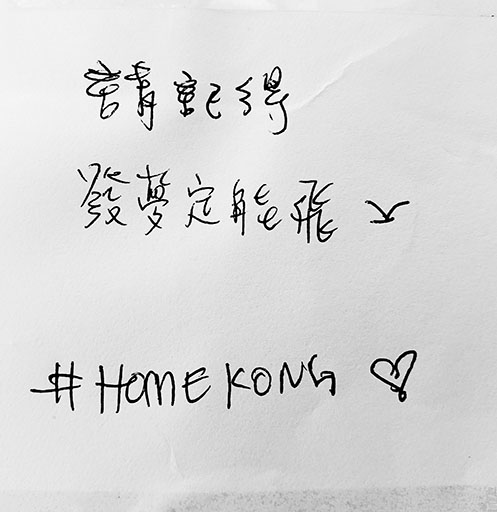 請記得
發夢定能飛
#HOMEKONG